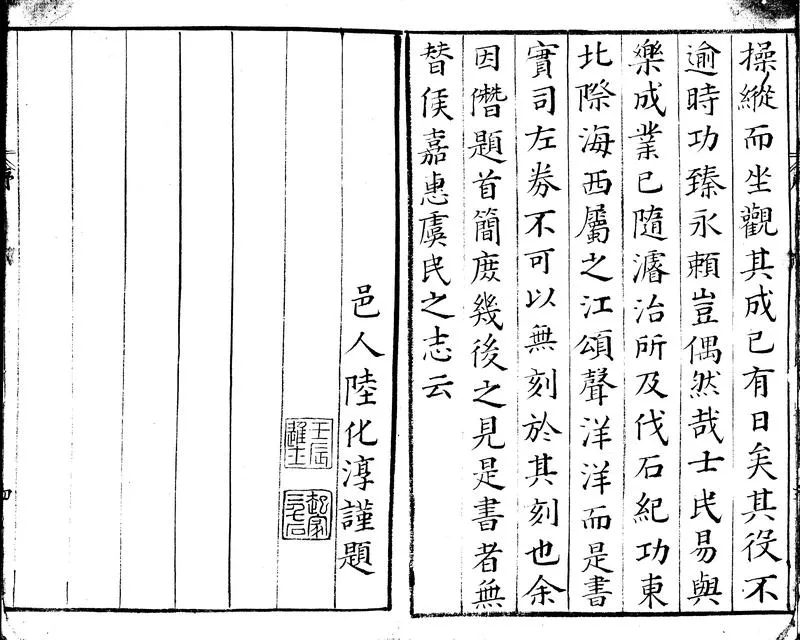 操縱而坐觀其成已有日矣其役不
逾時功臻永賴豈偶然哉士民易與
樂成業已隨濬治所及伐石紀功東
北際海西屬之江頌聲洋洋而是書
實司左券不可以無刻於其刻也余
因僭題首簡庻幾後之見是書者無
替侯嘉惠虞民之志云
邑人陸化淳謹題
壬辰進士